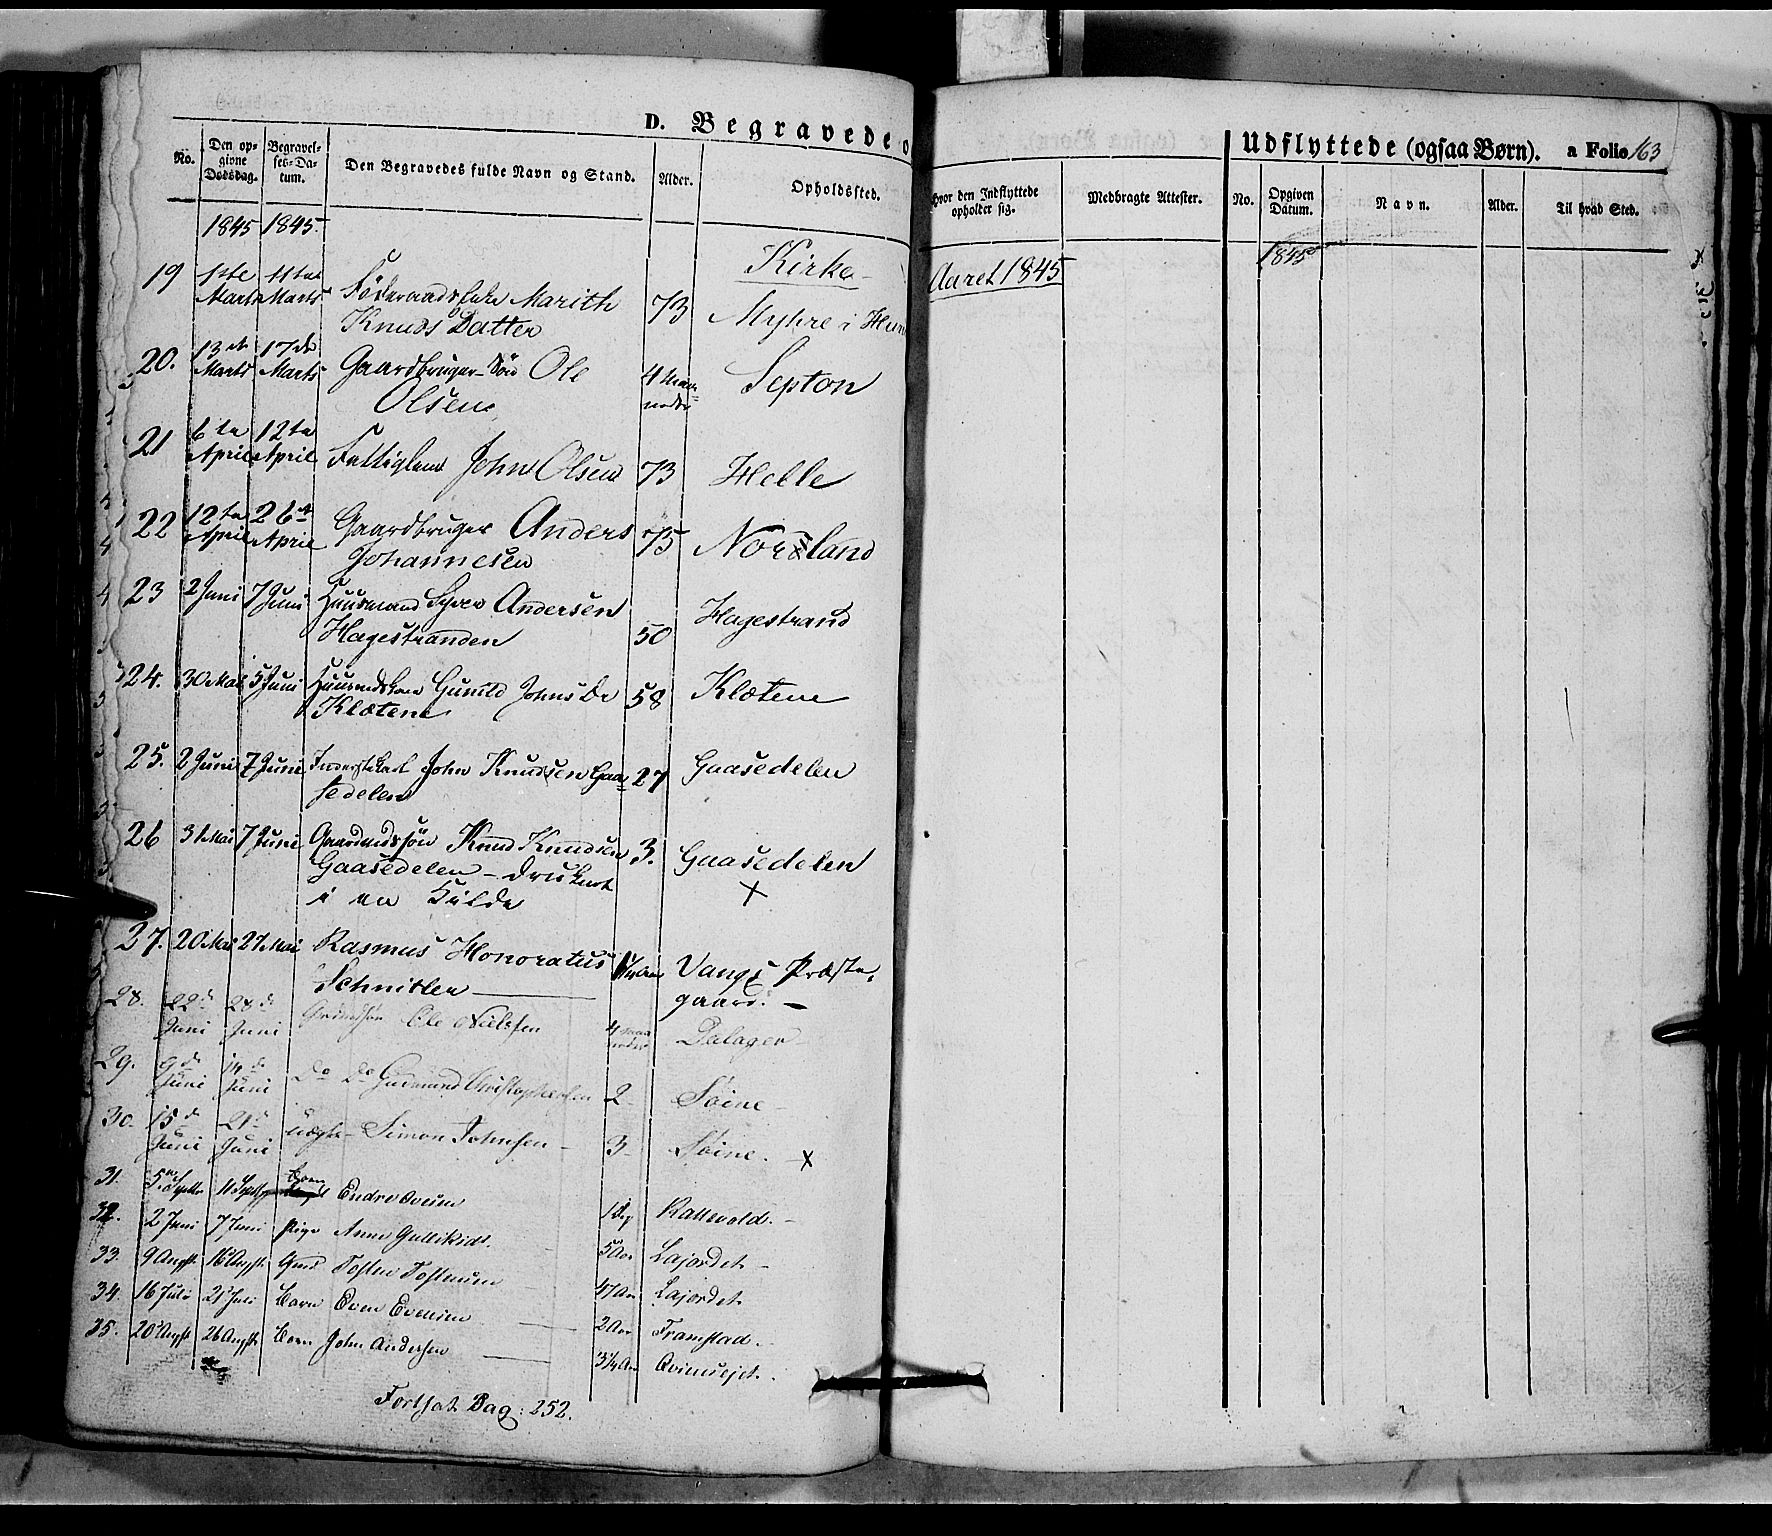 D. Begravede o
No.
Den op-
givne
Dødsdag.
Begravel-
ses-Da-
tum.
Den Begravedes fulde Navn og Stand.
Alder.
Opholdssted.
1845 1845.
Kirke
19 1ste Marts 11te Marts Marith
Knuds Datter 73 Myhre i
20. 13de Marts 17de Marts Gaardbruger-Søn Ole
Olsen 4 Septon
21 6te April 12te April Fattiglem John Olsen 73 Helle
22 12te April 26de April Gaardbruger Anders
Johannesen 75 Nordland
23 2 Juni 7 Juni Huusmand Andersen
Hagestranden 50 Hagestrand
24. 30 Mai 5 Juni Gunild Johns Dr
Klætene 58 Klætene
25. 2 Juni 7 Juni John Knudsen Gaa=
sedelen 27 Gaasedelen
26 31 Mai 7 Juni Knud Knudsen
Gaasedelen - 3. Gaasedelen
i en Kilde x
27. 20 Mai 27 Mai Rasmus Honoratus
Schnitler Vangs Præste-
gaard. -
28. 22d Juni 28d Juni Ole Nielssen 4 Dalager
29. 9d Juni 14d Juni Do Do Gudmund Christophersen 2 Søine
30. 15d Juni 21d Juni Simon Johnsen 3 Søine. x
31. Endre 1 Dag
32. 2 Juni 7 Juni Pige Anne 5 Aar Lajordet
33. 9 Augst 16 Augst Tosten 47 Aar Lajordet
34. 16 Juli 21 Juli Barn Even Evensen 2 Aar Framstad.
35. 20 Augst 26 Augst Barn John Andersen 3¼ Aar
Fortsat Pag: 252.
Udflyttede (ogsaa Børn). a Folio 163
Hvor den Indflyttede
opholder sig.
Medbragte Attester.
No.
Opgiven
Datum.
Navn.
Alder.
Til hvad Sted.
Aaret 1845
1845